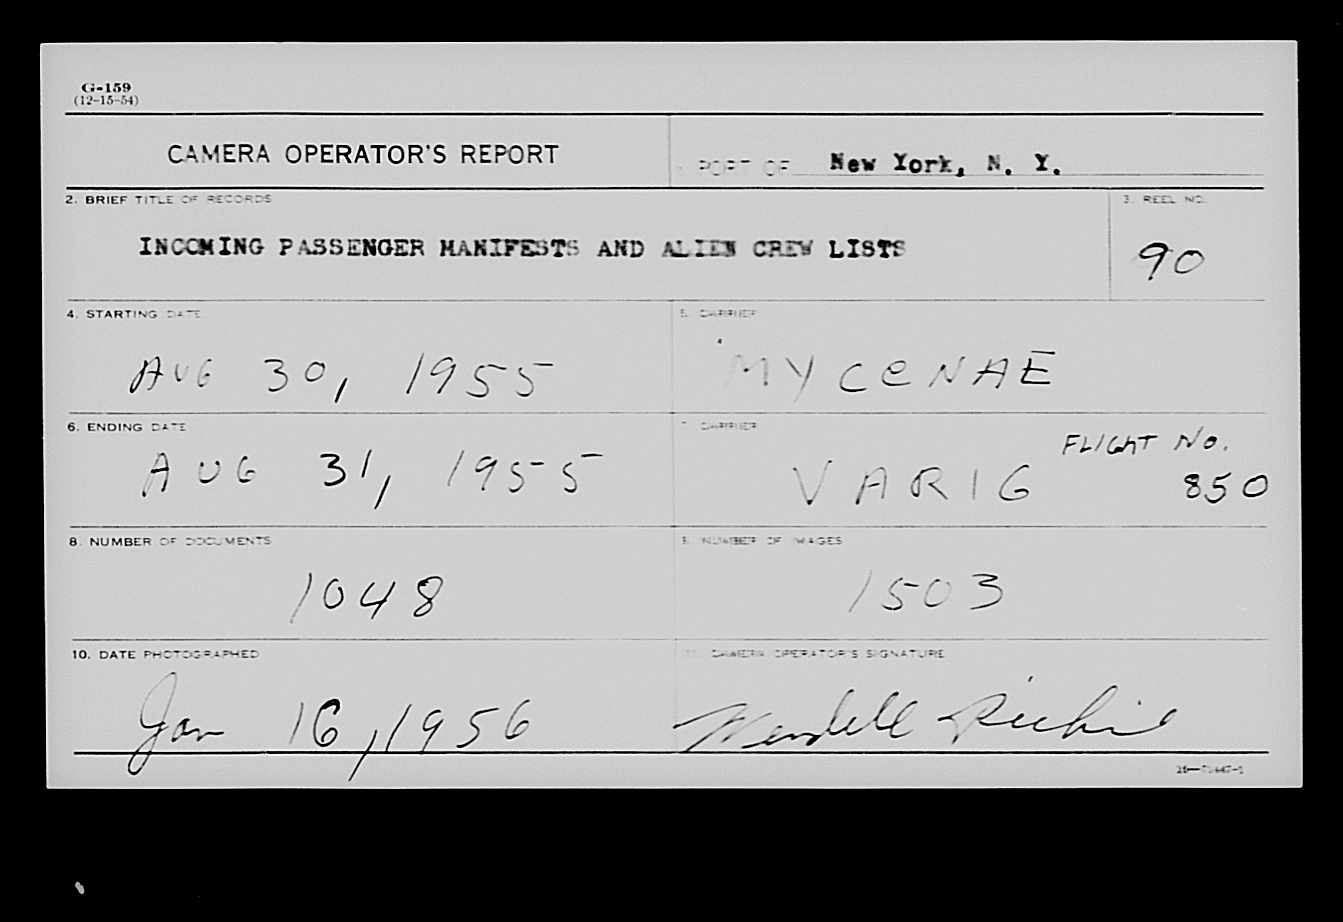 G-159
(12-15-54)
CAMERA OPERATOR'S REPORT
PORT OF New York, N. Y.
2. BRIEF TITLE OF RECORDS
3. REEL NO.
INCOMING PASSENGER MANIFESTS AND ALIEN CREW LISTS
90
4. STARTING DATE
5. CARRIER
AUG 30, 1955
MYCENAE
6. ENDING DATE
7. CARRIER
AUG 31, 1955
VARIG
FLIGHT NO.
850
8. NUMBER OF DOCUMENTS
9. NUMBER OF IMAGES
1048
1503
10. DATE PHOTOGRAPHED
11. CAMERA OPERATOR'S SIGNATURE
Jan 16, 1956
Wendell Richie